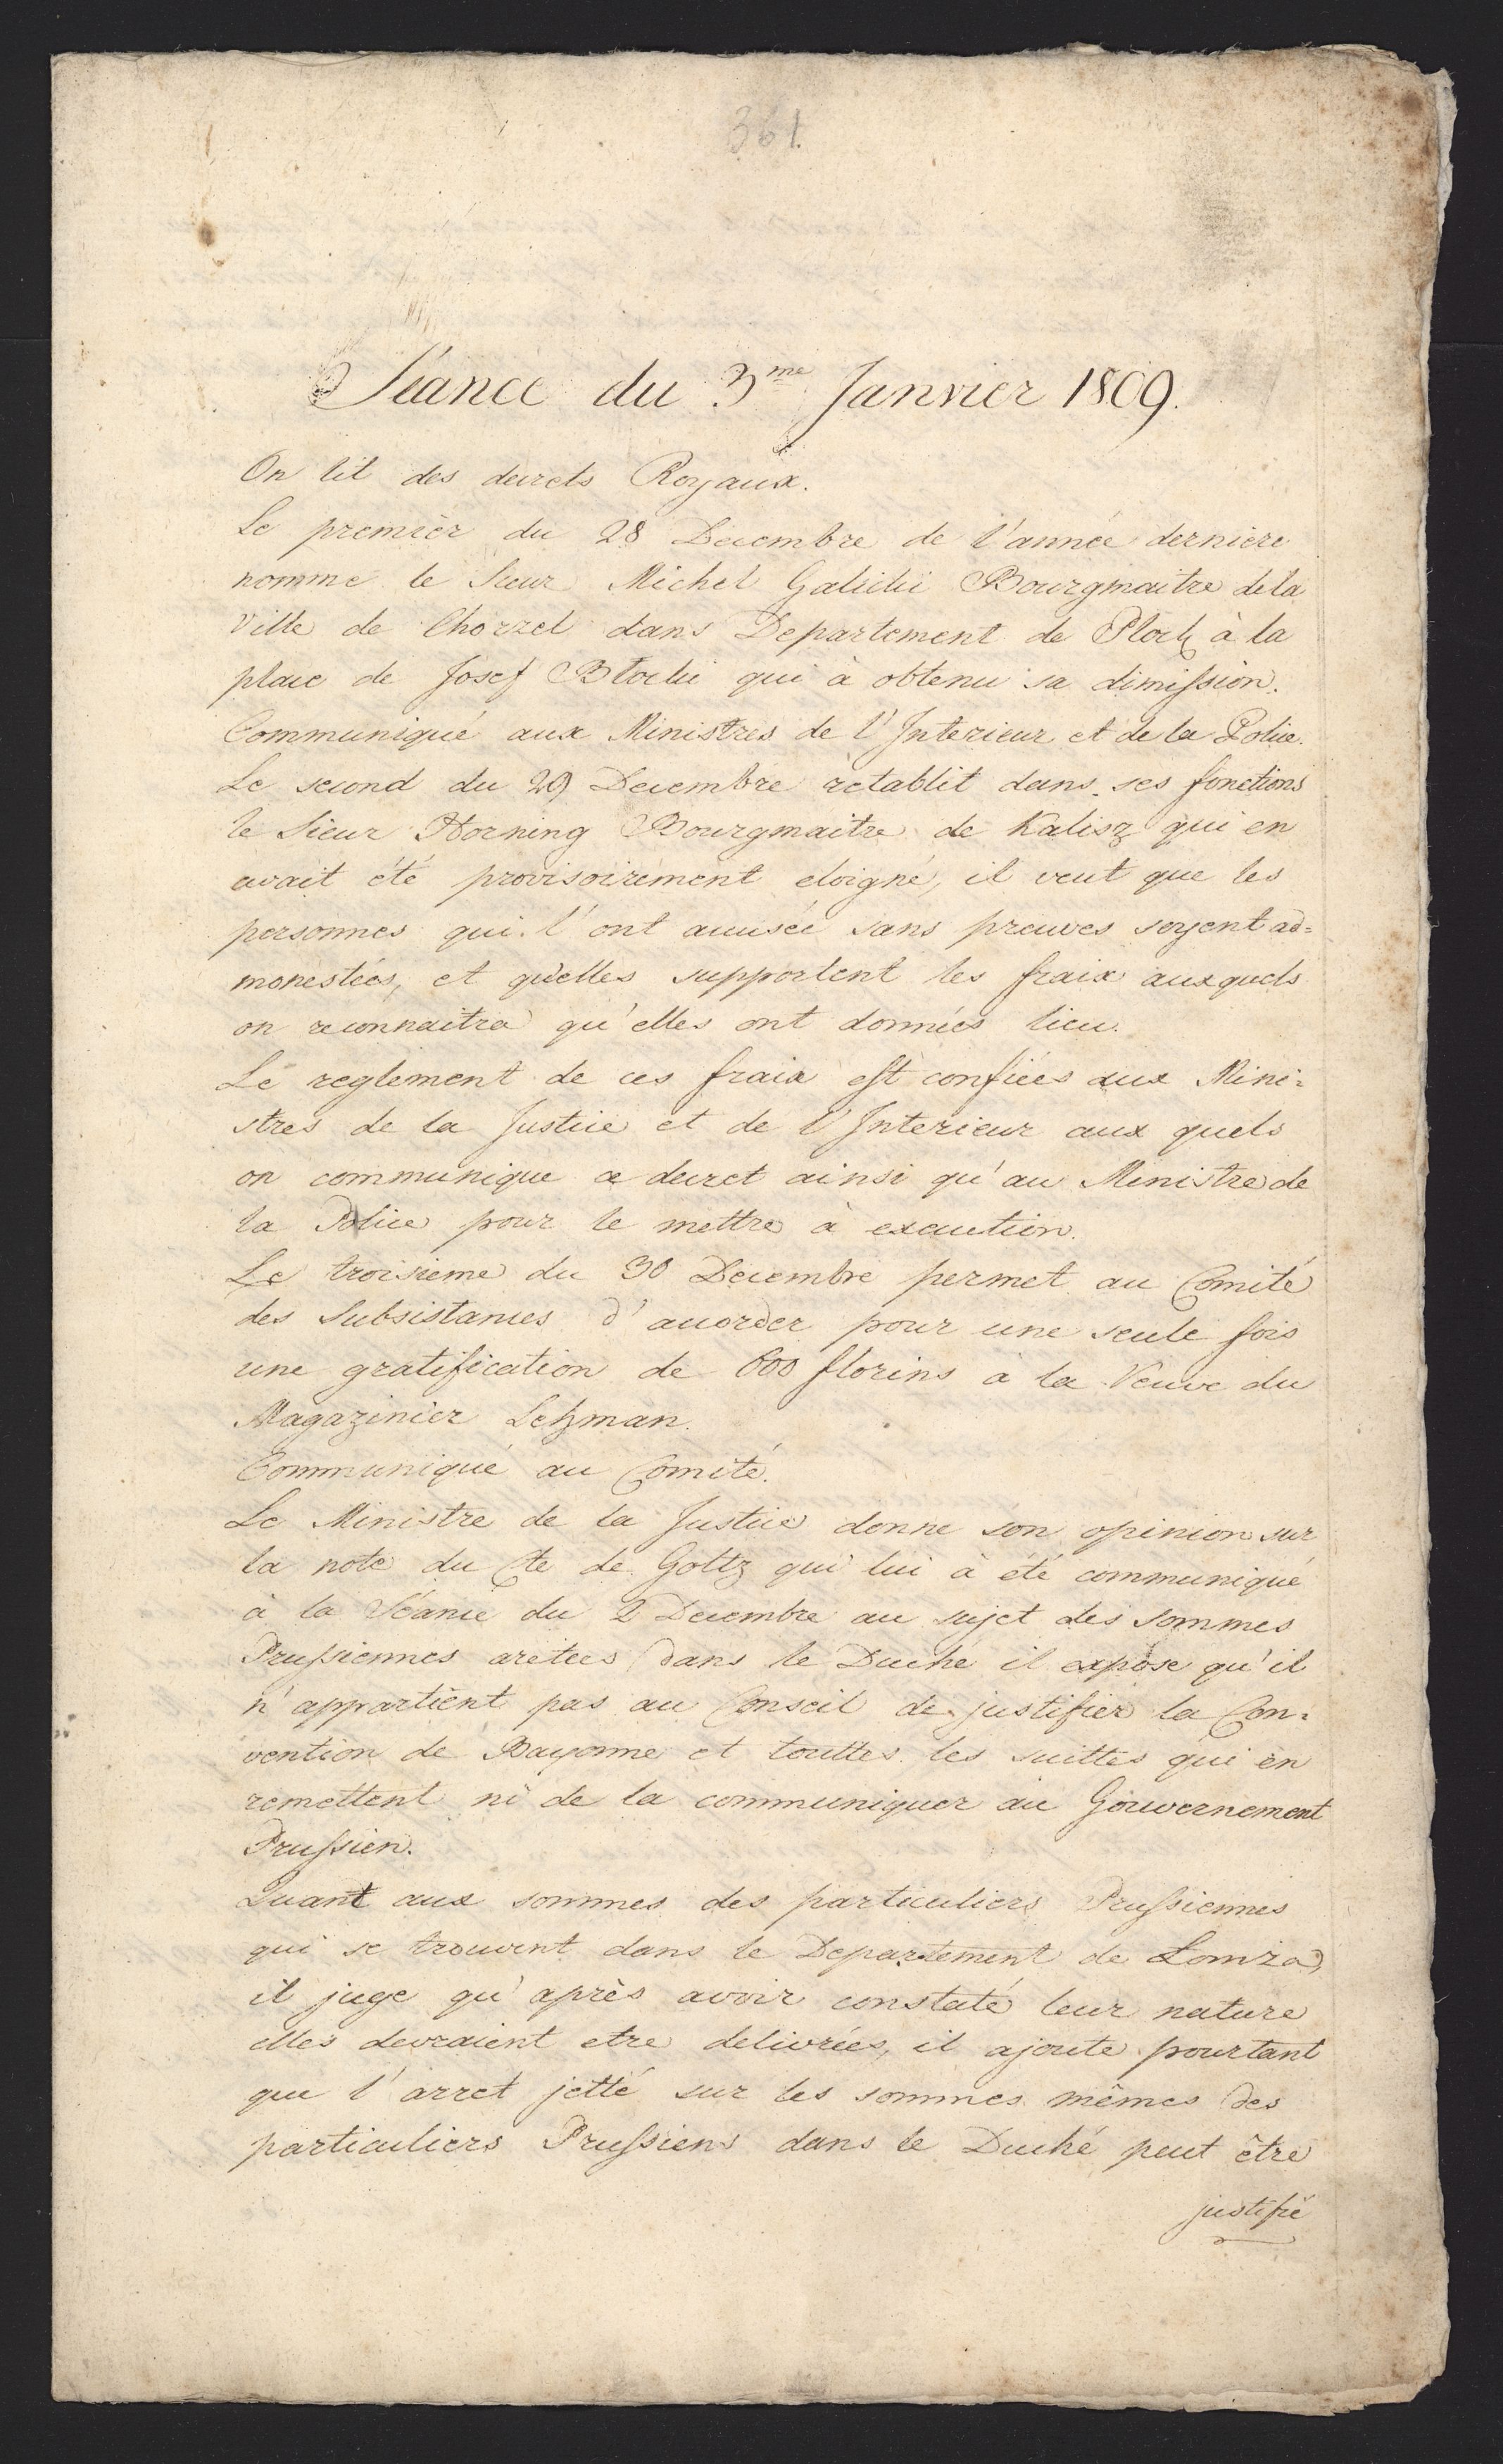 361.
Séance du 3me Janvier 1809.
On lit des decrets Royaux.
Le premièr du 28 Decembre de l'année derniere
nomme le Sieur Michel Galicki Bourgmaitre de la
Ville de Chorzel dans Departement de Plock à la
place de Josef Blocki qui à obtenu sa dimission.
Communiqué aux Ministres de l'Interieur et de la Police.
Le second du 29 Decembre rètablit dans ses fonctions
le Sieur Horning Bourgmaitre de Kalisz qui en
avait été provisoirement eloigné, il veut que les
personnes qui l'ont accusée sans preuves soyent ad=
monestées, et qu'elles supportent les fraix auxquels
on reconnaitra qu'elles ont données lieu.
Le reglement de ces fraix est confiées aux Mini=
stres de la Justice et de l'Interieur aux quels
on communique ce decret ainsi qu'au Ministre de
la Police pour le mettre à execution.
Le troisieme du 30 Decembre permet au Comité
des Subsistances d'accorder pour une seule fois
une gratification de 600 florins à la Veuve du
Magazinier Lehman.
Communiqué au Comité.
Le Ministre de la Justice donne son opinion sur
la note du Cte de Goltz qui lui à été communiqué
à la Séance du 2 Decembre au sujet des sommes
Prussiennes aretees dans le Duché il expose qu'il
n'appartient pas au Conseil de justifier la Con=
vention de Bayonne et touttes les suittes qui en
remettent ni de la communiquer au Gouvernement
Prussien.
Quant aux sommes des particuliers Prussiennes
qui se trouvent dans le Departement de Lomza,
il juge qu'après avoir constaté leur nature
elles devraient etre delivrées, il ajoute pourtant
que l'arret jetté sur les sommes mêmes des
particuliers Prussiens dans le Duché peut être
justifié